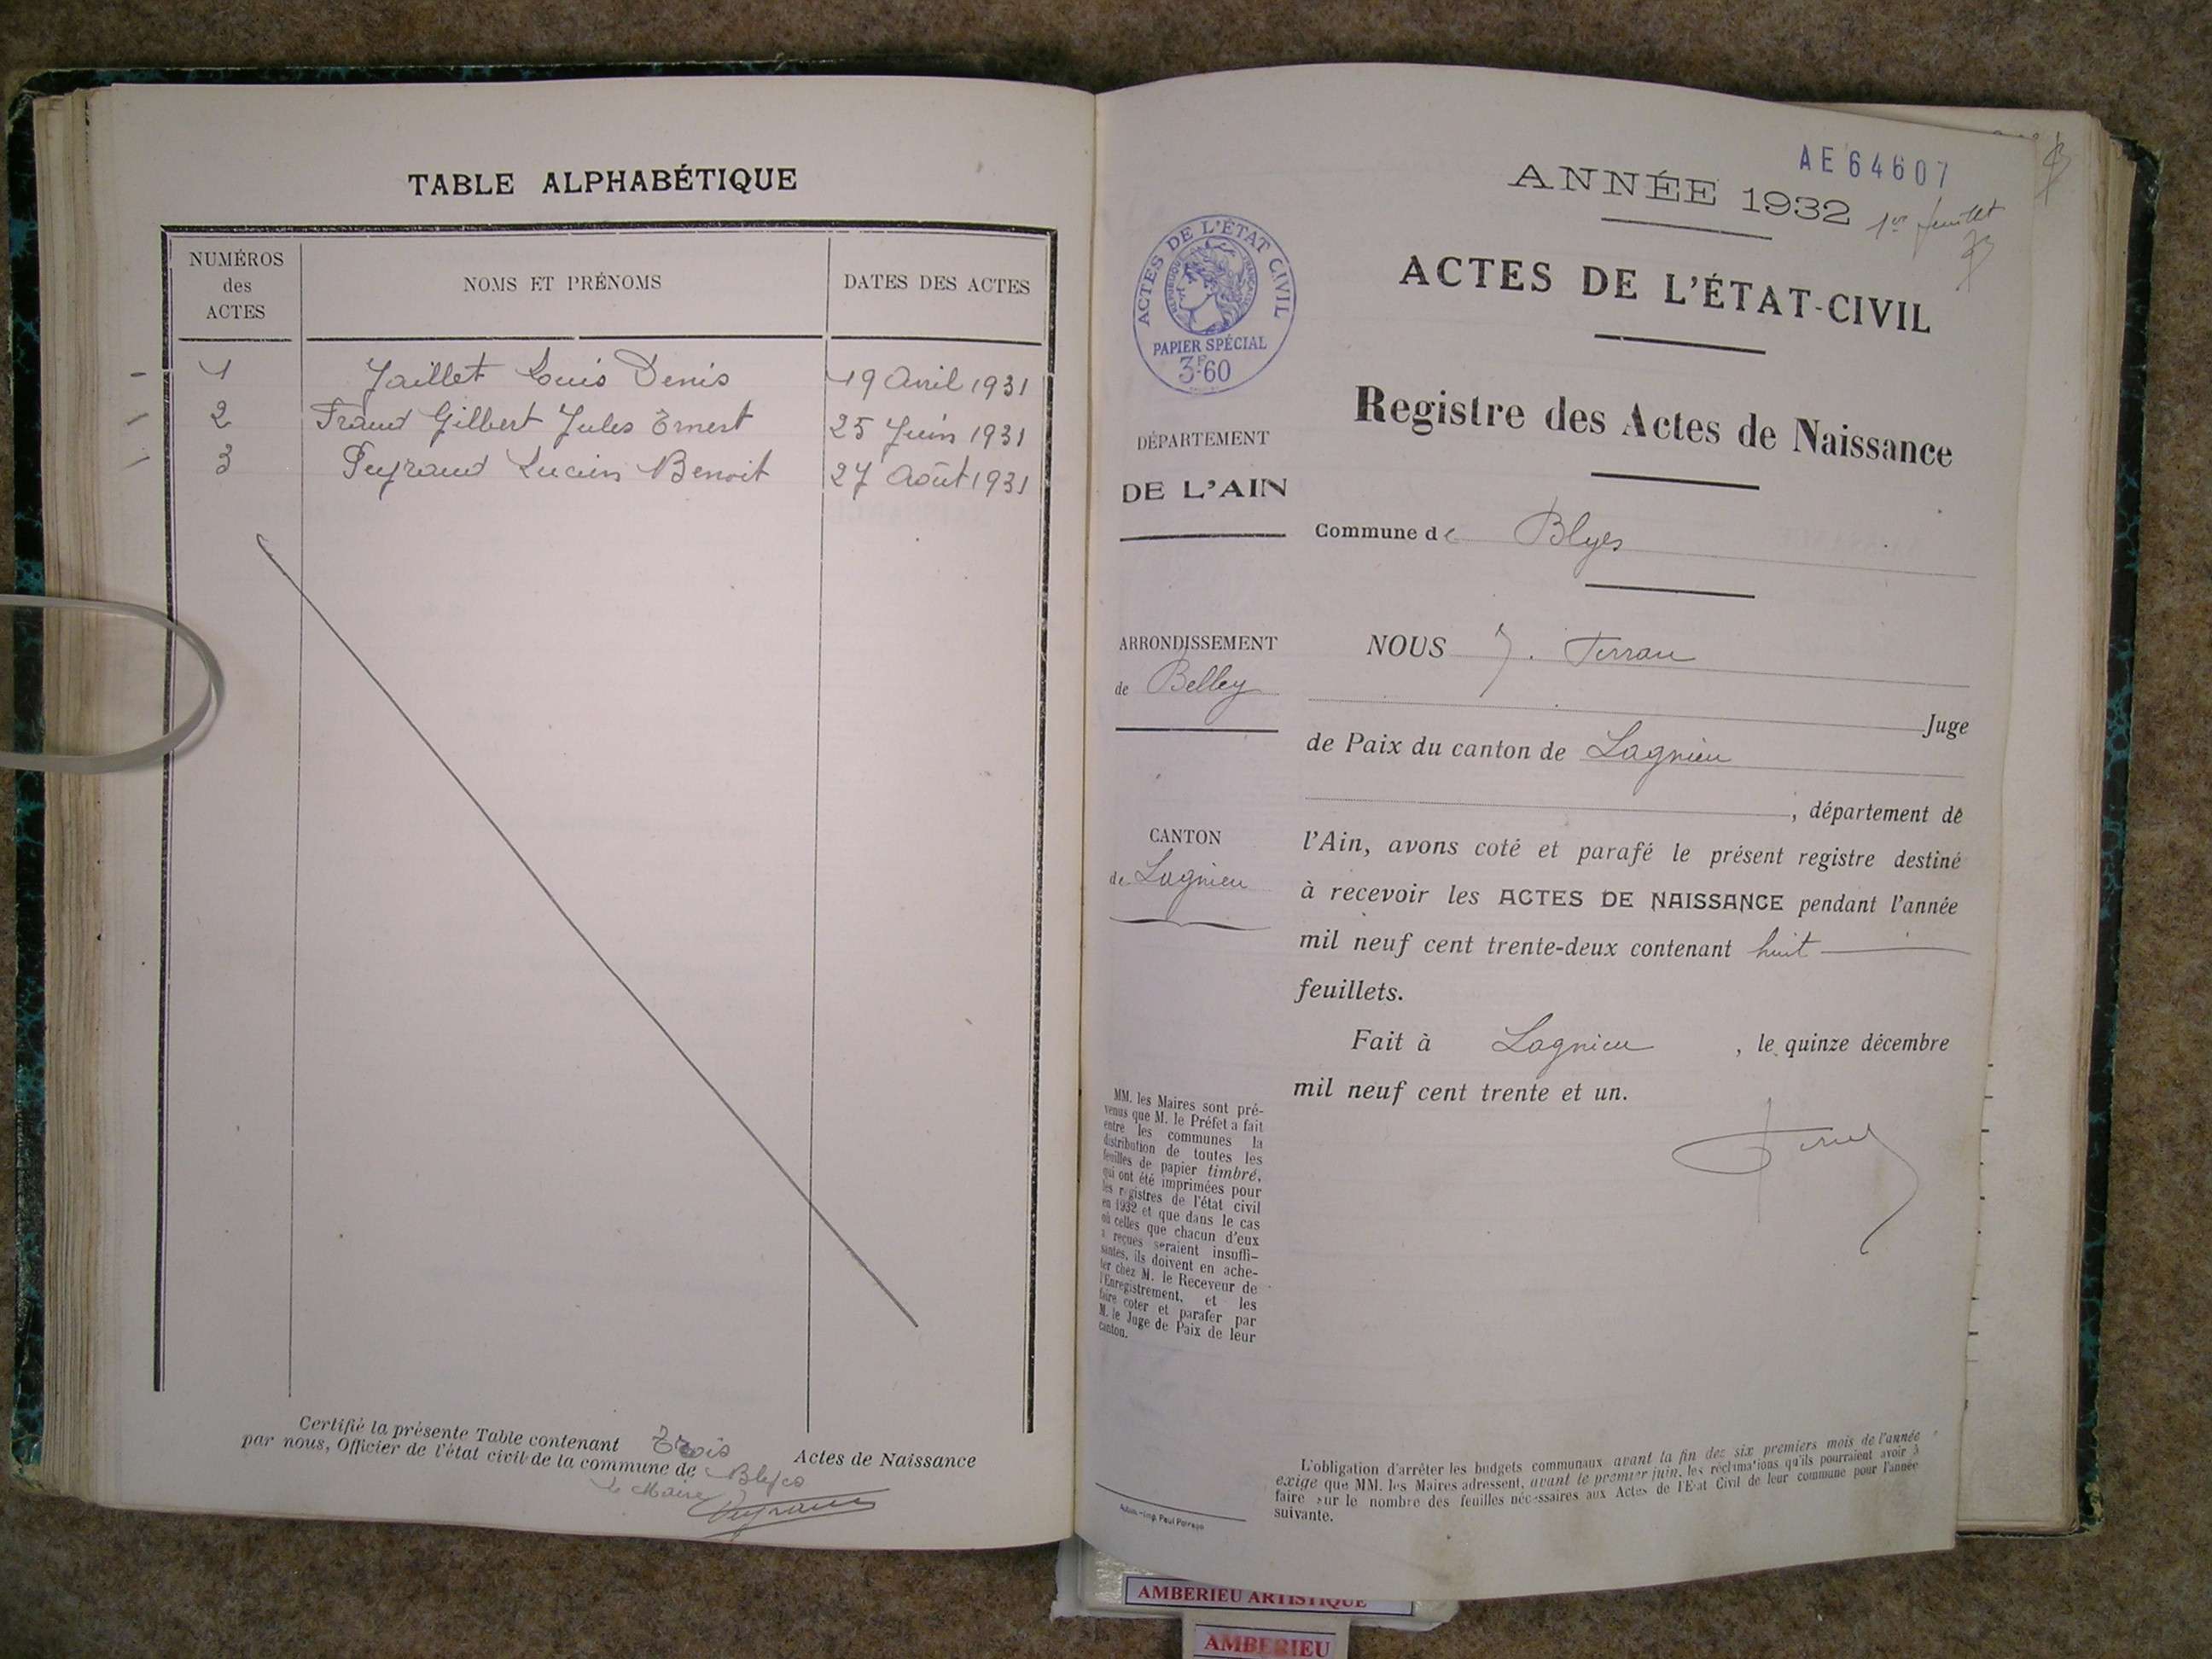 TABLE ALPHABÉTIQUE
NUMÉROS
des
ACTES
NOMS ET PRÉNOMS
DATES DES ACTES
1 Jaillet Louis Denis 19 Avril 1931
2 Gilbert Jules Ernest 25 Juin 1931
3 Peyraud Lucien Benoit 27 Août 1931
Certifié la présente Table contenant Trois Actes de Naissance
par nous, Officier de l'état civil de la commune de Blyes
le Maire
Peyraud
AE64607
ANNÉE 1932
1er feuillet
ACTES DE L'ÉTAT-CIVIL
Registre des Actes de Naissance
ACTES DE L'ÉTAT CIVIL
RÉPUBLIQUE FRANÇAISE
PAPIER SPÉCIAL
3F60
DÉPARTEMENT
DE L'AIN
Commune de Blyes
ARRONDISSEMENT
de Belley
CANTON
de Lagnieu
NOUS
Juge
de Paix du canton de Lagnieu
, département de
l'Ain, avons coté et parafé le présent registre destiné
à recevoir les ACTES DE NAISSANCE pendant l'année
mil neuf cent trente-deux contenant huit
feuillets.
Fait à Lagnieu , le quinze décembre
mil neuf cent trente et un.
MM. les Maires sont pré-
venus que M. le Préfet a fait
entre les communes la
distribution de toutes les
feuilles de papier timbré,
qui ont été imprimées pour
les registres de l'état civil
en 1932 et que dans le cas
où celles que chacun d'eux
a reçues seraient insuffi-
santes, ils doivent en ache-
ter chez M. le Receveur de
l'Enregistrement, et les
faire coter et parafer par
M. le Juge de Paix de leur
canton.
L'obligation d'arrêter les budgets communaux avant la fin des six premiers mois de l'année
exige que MM. les Maires adressent, avant le premier juin, les réclamations qu'ils pourraient avoir à
faire sur le nombre des feuilles nécessaires aux Actes de l'Etat Civil de leur commune pour l'année
suivante.
AMBERIEU ARTISTIQUE
AMBERIEU